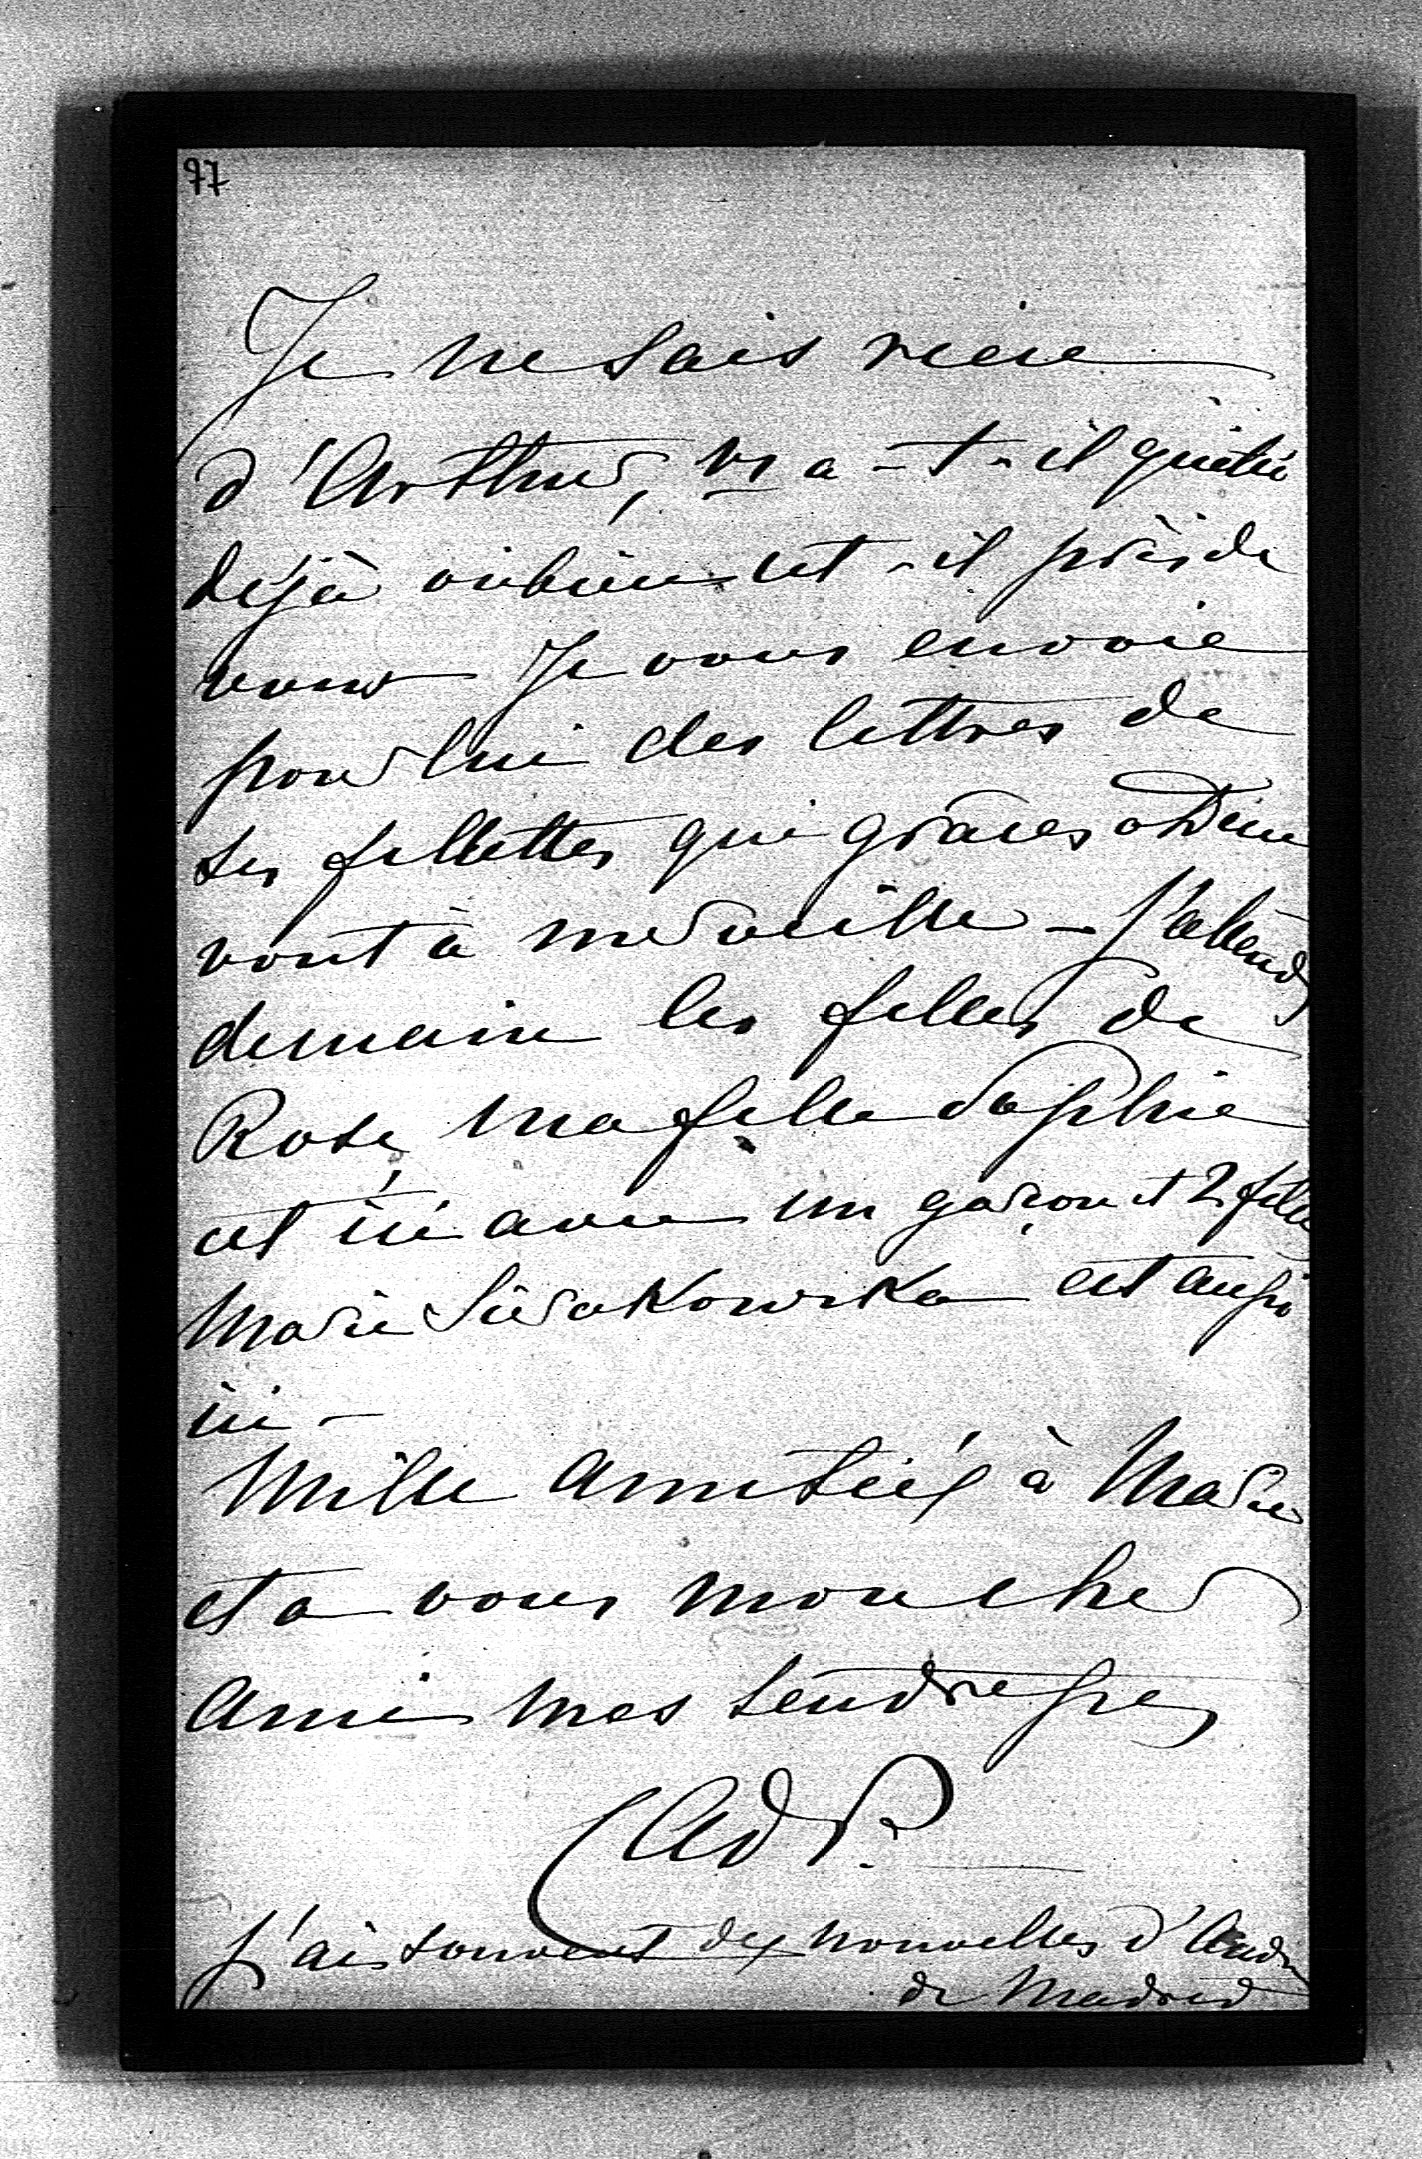 97
Je ne sais rien
d'Arthur, vs a-t-il quitté
déjà ou bien est-il près de
vous Je vous envoie
pour lui des lettres de
ses fillettes qui grâces à Dieu
vont à merveille - J'attends
demain les filles de
Rose, ma fille Sophie
est ici avec un garçon et 2 filles
Marie Sierakowska est aussi
ici -
Mille amitiés à Marie
et a vous mon cher
Ami mes tendresses
AdP.
J'ai souvent des nouvelles d'
de Madrid